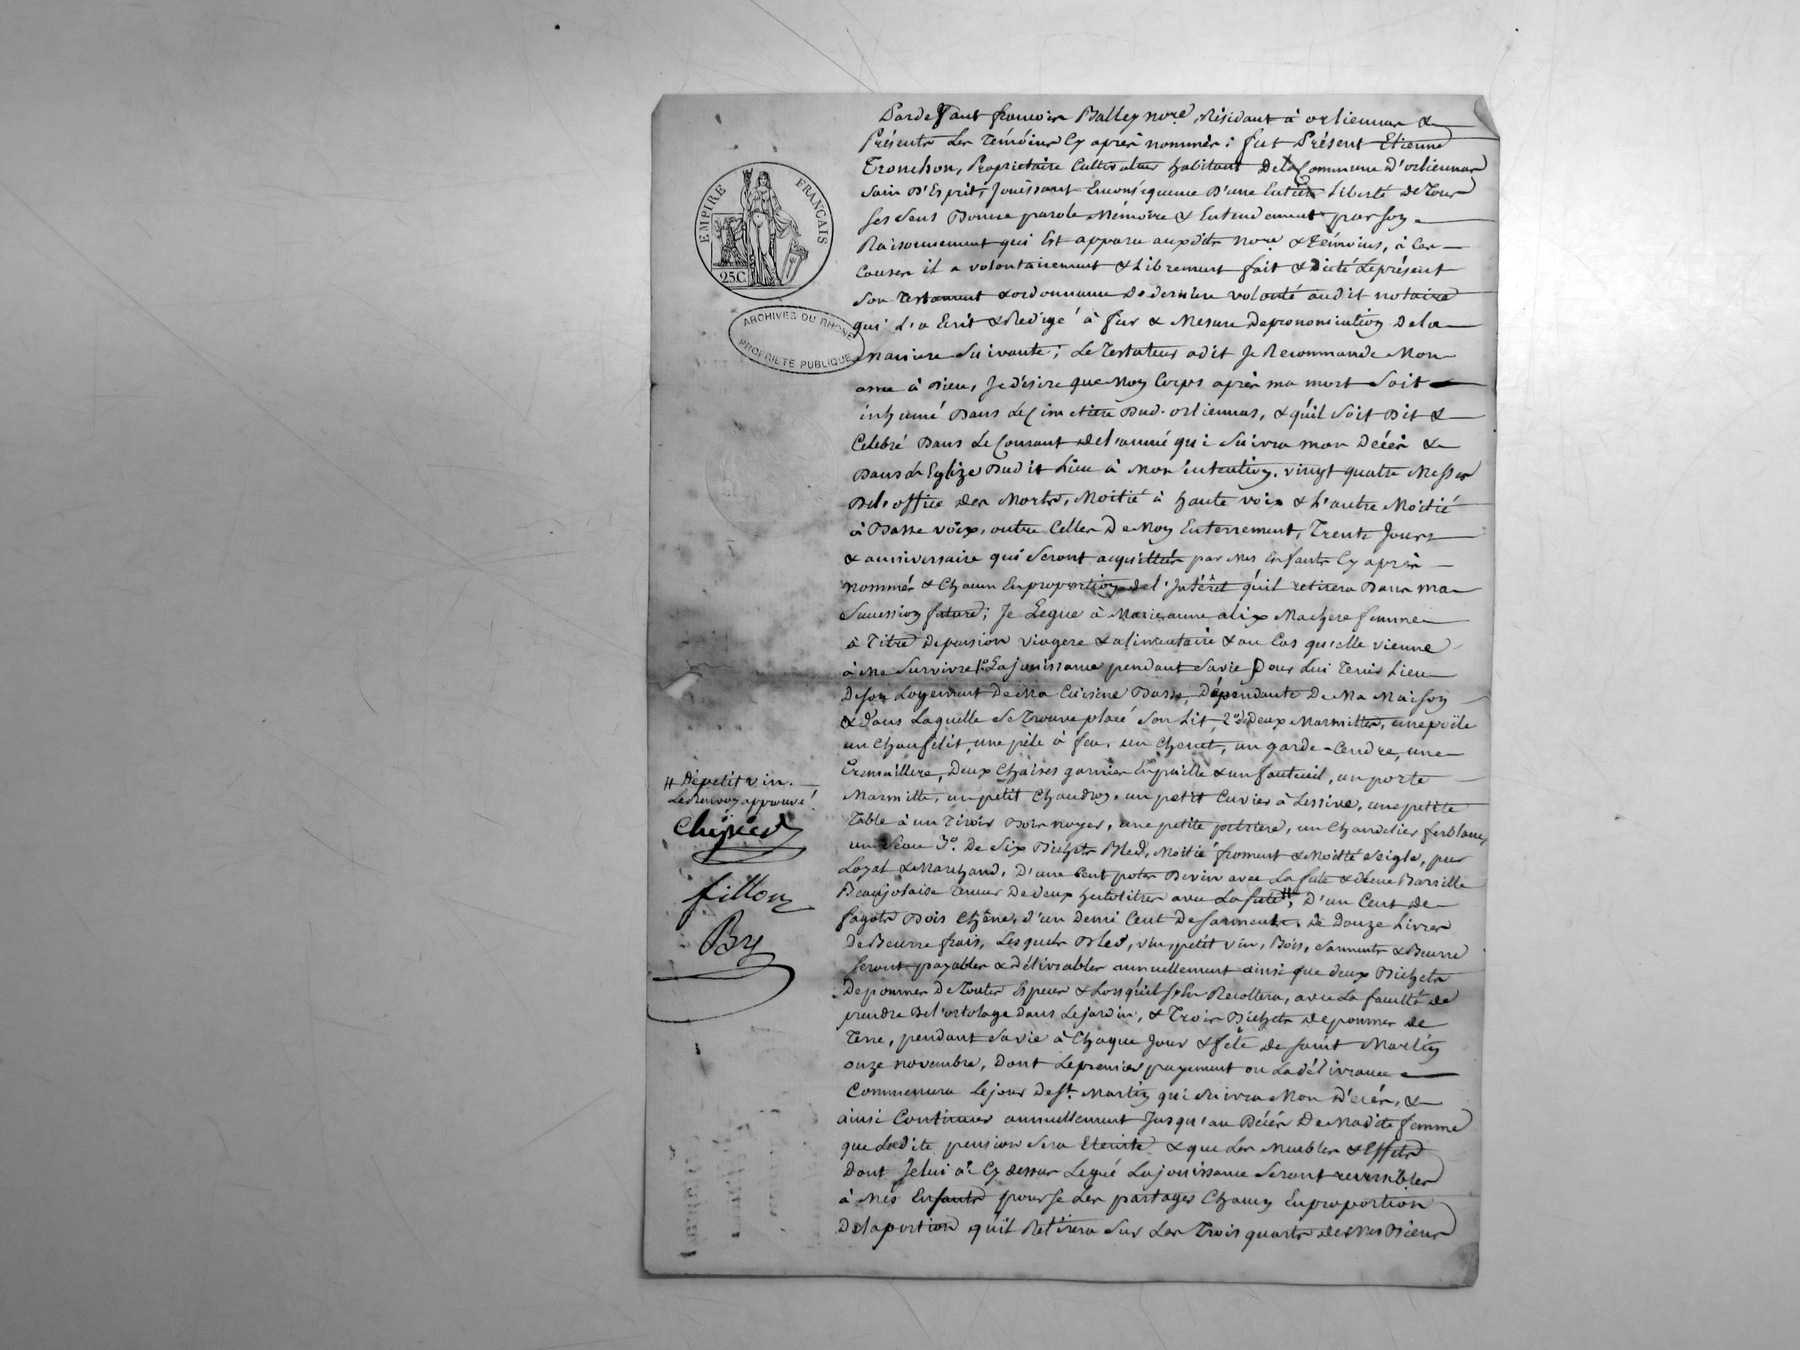 EMPIRE FRANÇAIS
25C
ARCHIVES DU RHONE
PROPRIETE PUBLIQUE
Pardevant francois Balley nore. Résidant à orliennas &
Présents les témoins Cy après nommés; fut Présent Etienne
Tronchon, Proprietaire Cultivateur habitant De la Commune d'orliennas
Sain D'Esprit, Jouissant Enconséquence D'une Entière Liberté de Tous
Ses Sens Bonne parole Mémoire & Entendement parson
Raisonnement qui Est apparu auxdits nore & témoins, à Ces
Causes il a volontairement & Librement fait & dicté Le présent
Son Testament & ordonnance De derniere volonté audit notaire
qui L'a Ecrit & Redigé à fur & Mesure De prononciation De la
maniere Suivante; Le Testateur a dit Je Recommande Mon
ame à Dieu, Je désire que Mon Corps après ma mort Soit
inhumé Dans Le Cimetiere Dud. orliennas, & qu'il Soit Dit &
Célébré Dans Le Courant de l'année qui Suivra mon Décès &
Dans L'Eglize Dudit Lieu à Mon intention, vingt quatre Messes
De l'office des Morts, Moitié à haute voix & L'autre Moitié
à Basse voix, outre Celles De Mon Enterrement, Trente Jours
& anniversaire qui Seront acquittés par Mes Enfants Cy après
nommés & Chacun En proportion de l'Intérêt qu'il retirera Dans ma
Succession future; Je Legue à Marieanne alix Ma chere femme
à Titre de pension viagere & alimentaire & au Cas qu'elle vienne
à Me Survivre 1o. La jouissance pendant Sa vie Pour Lui Tenir Lieu
De Son Logement De Ma Cuisine Basse, Dépendante De Ma Maison
& dans Laquelle Se Trouve placé Son Lit 2o. de Deux Marmittes, une poële
un Chaufelit, une pèle à feu, un Chenet, un garde-Cendre, une
Cremaillere, Deux Chaises garnies En paille & un fauteuil, un porte
Marmitte, un petit Chaudron, un petit Cuvier à Lessive, une petite
Table à un Tiroir Bois noyer, une petite , un Chandelier ferblanc,
un Seau 3o. De Six Bichets Bled, Moitié froment & Moitié Seigle, pur
Loyal & Marchand, D'une De vin avec La fute & d'une Barrille
Beaujolaise Tenues De deux hectolitres avec La fute #, D'un Cent de
fagots Bois Chêne, d'un demi Cent De Sarments, De Douze Livres
De Beurre frais, Lesquels Bled, vin, petit vin, Bois, Sarments & Beurre
Seront payables & délivrables annuellement ainsi que deux Bichets
De pommes De Toutes Espèces & Lorsqu'il S'En Recoltera, avec La faculté de
prendre De l'ortolage Dans Le jardin, & Trois Bichets de pommes de
Terre, pendant Sa vie à Chaque Jour & fête de Saint Martin
onze novembre, Dont Le premier payement ou La délivrance
Commencera Le jour De St. Martin qui Suivra Mon Décès, &
ainsi Continuer annuellement Jusqu'au Décès De Madite femme
que Ladite pension Sera Eteinte & que Les Meubles & Effets
Dont Je lui ai Cy dessus Legué La jouissance Seront reversibles
à Mes Enfants pour Se Les partager Chacun En proportion
De la portion qu'il Retirera Sur Les Trois quarts de Mes Biens
# De petit vin.
Le Renvoy approuvé !
fillon
By